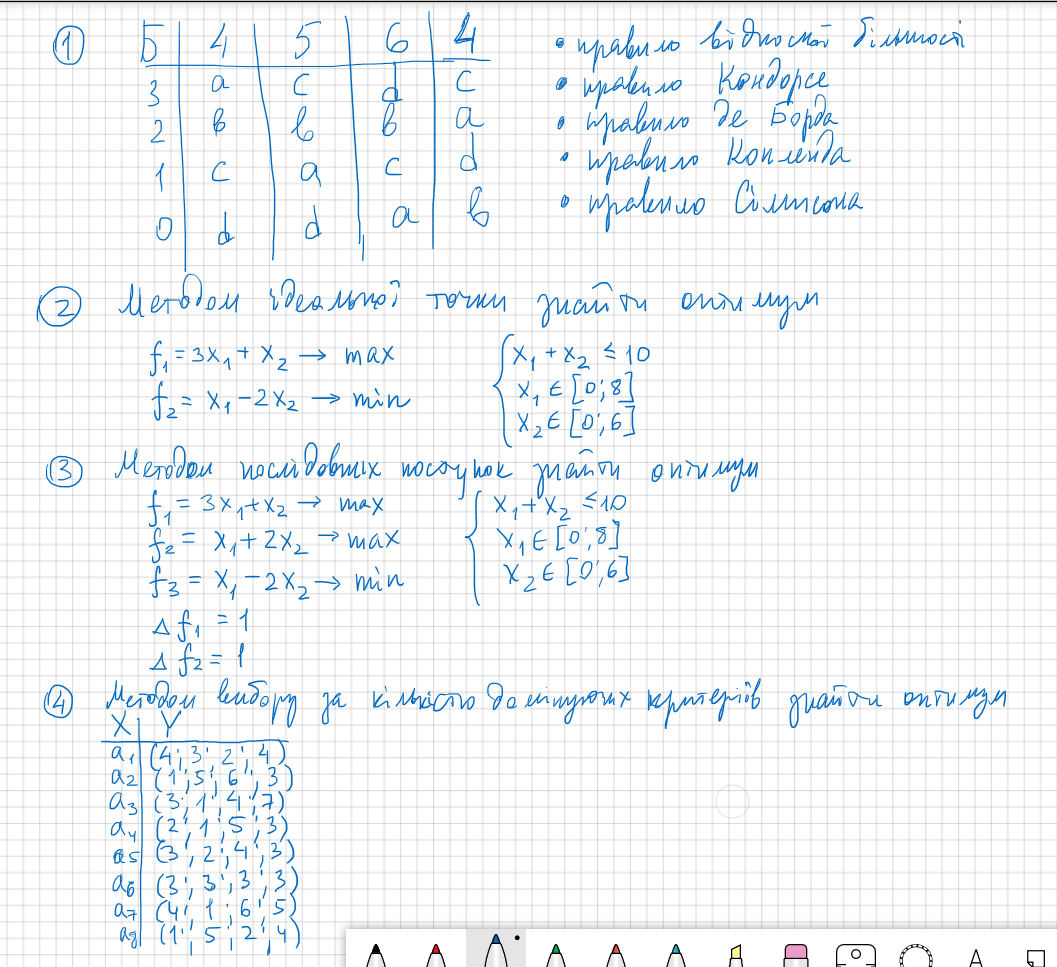 ① Б 4 5 6 4
3 a c d c
2 b b b a
1 c a c d
0 d d a b
• правило відносної більшості
• правило Кондорсе
• правило де Борда
• правило Копленда
• правило Сімпсона
② Методом ідеальної точки знайти оптимум
f₁ = 3x₁ + x₂ → max
f₂ = x₁ - 2x₂ → min
x₁ + x₂ ≤ 10
x₁ ∈ [0; 8]
x₂ ∈ [0; 6]
③ Методом послідовних поступок знайти оптимум
f₁ = 3x₁ + x₂ → max
f₂ = x₁ + 2x₂ → max
f₃ = x₁ - 2x₂ → min
x₁ + x₂ ≤ 10
x₁ ∈ [0; 8]
x₂ ∈ [0; 6]
Δ f₁ = 1
Δ f₂ = 1
④ Методом вибору за кількістю домінуючих критеріїв знайти оптимум
X Y
a₁ (4; 3; 2; 4)
a₂ (1; 5; 6; 3)
a₃ (3; 1; 4; 7)
a₄ (2; 1; 5; 3)
a₅ (3; 2; 4; 3)
a₆ (3; 3; 3; 3)
a₇ (4; 1; 6; 5)
a₈ (1; 5; 2; 4)